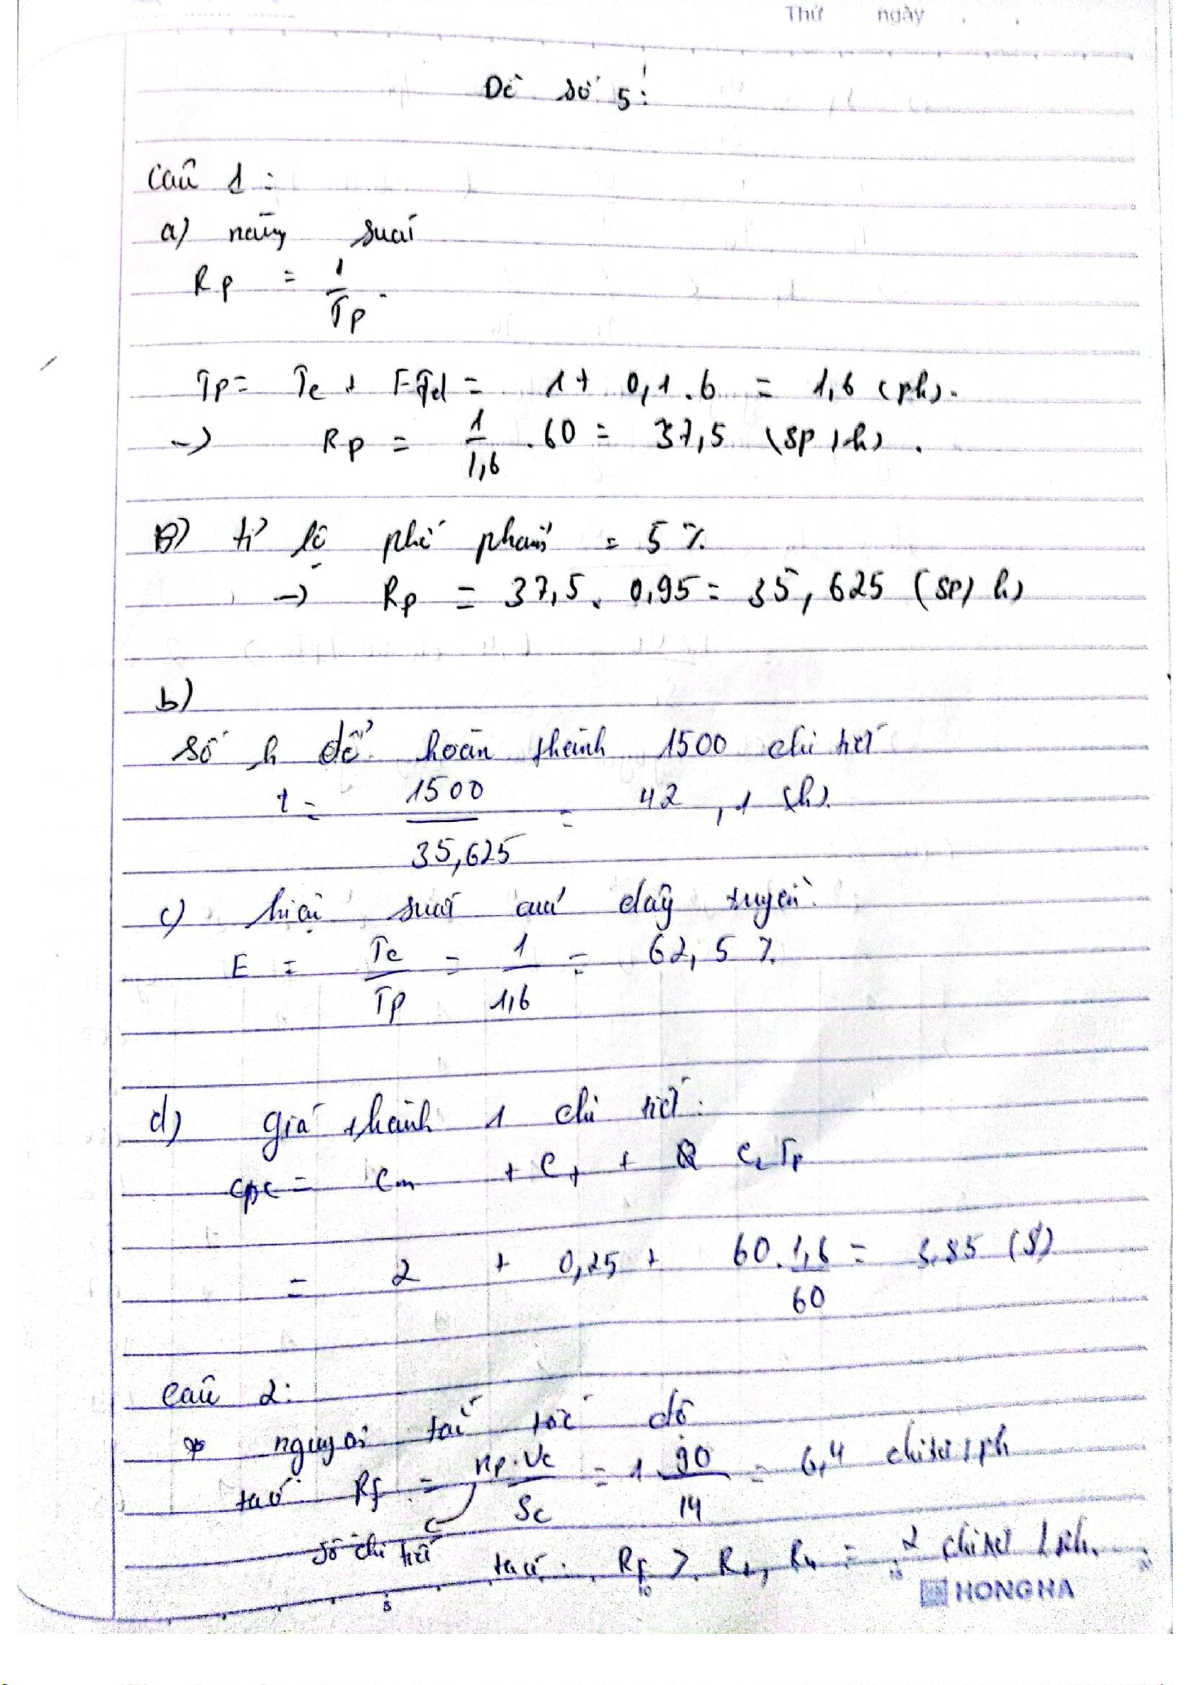 Thứ ngày
Đề số 5:
Câu 1:
a) năng suất
Rp = 1/Tp.
Tp = Tc + FTd = 1 + 0,1.6 = 1,6 (ph).
-> Rp = 1/1,6 . 60 = 37,5 (sp/h).
B) tỉ lệ phế phẩm = 5%
-> Rp = 37,5. 0,95 = 35,625 (sp/h)
b)
số h để hoàn thành 1500 chi tiết
t = 1500/35,625 = 42,1 (h).
c) hiệu suất của dây truyền:
E = Tc/Tp = 1/1,6 = 62,5%
d) giá thành 1 chi tiết:
Cpc = Cm + Ct + CL Tp
= 2 + 0,25 + 60.1,6/60 = 3,85 ($)
Câu 2:
* nguyên tắc tốc độ
ta có: Rf = np.Vc/Sc = 1 90/14 = 6,4 chi tiết/ph
số chi tiết
ta có: Rf > RL, RL = 2 chi tiết/ph.
5 10 15 20
HONG HA